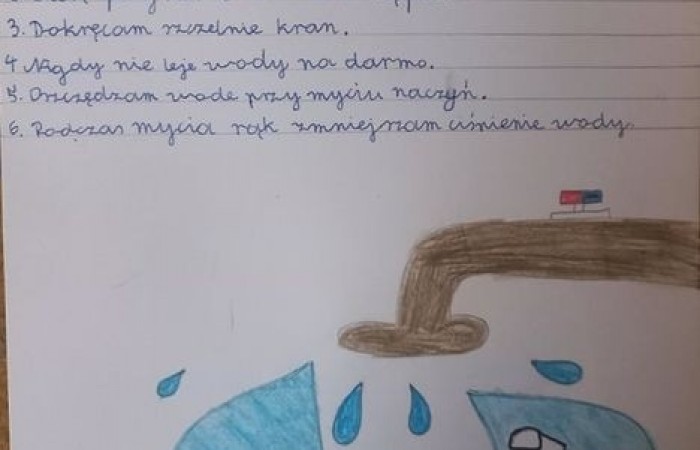 3. Dokręcam szczelnie kran.
4 Nigdy nie leje wody na darmo.
5. Oszczędzam wode przy myciu naczyń.
6. Podczas mycia rąk zmniejszam ciśnienie wody.